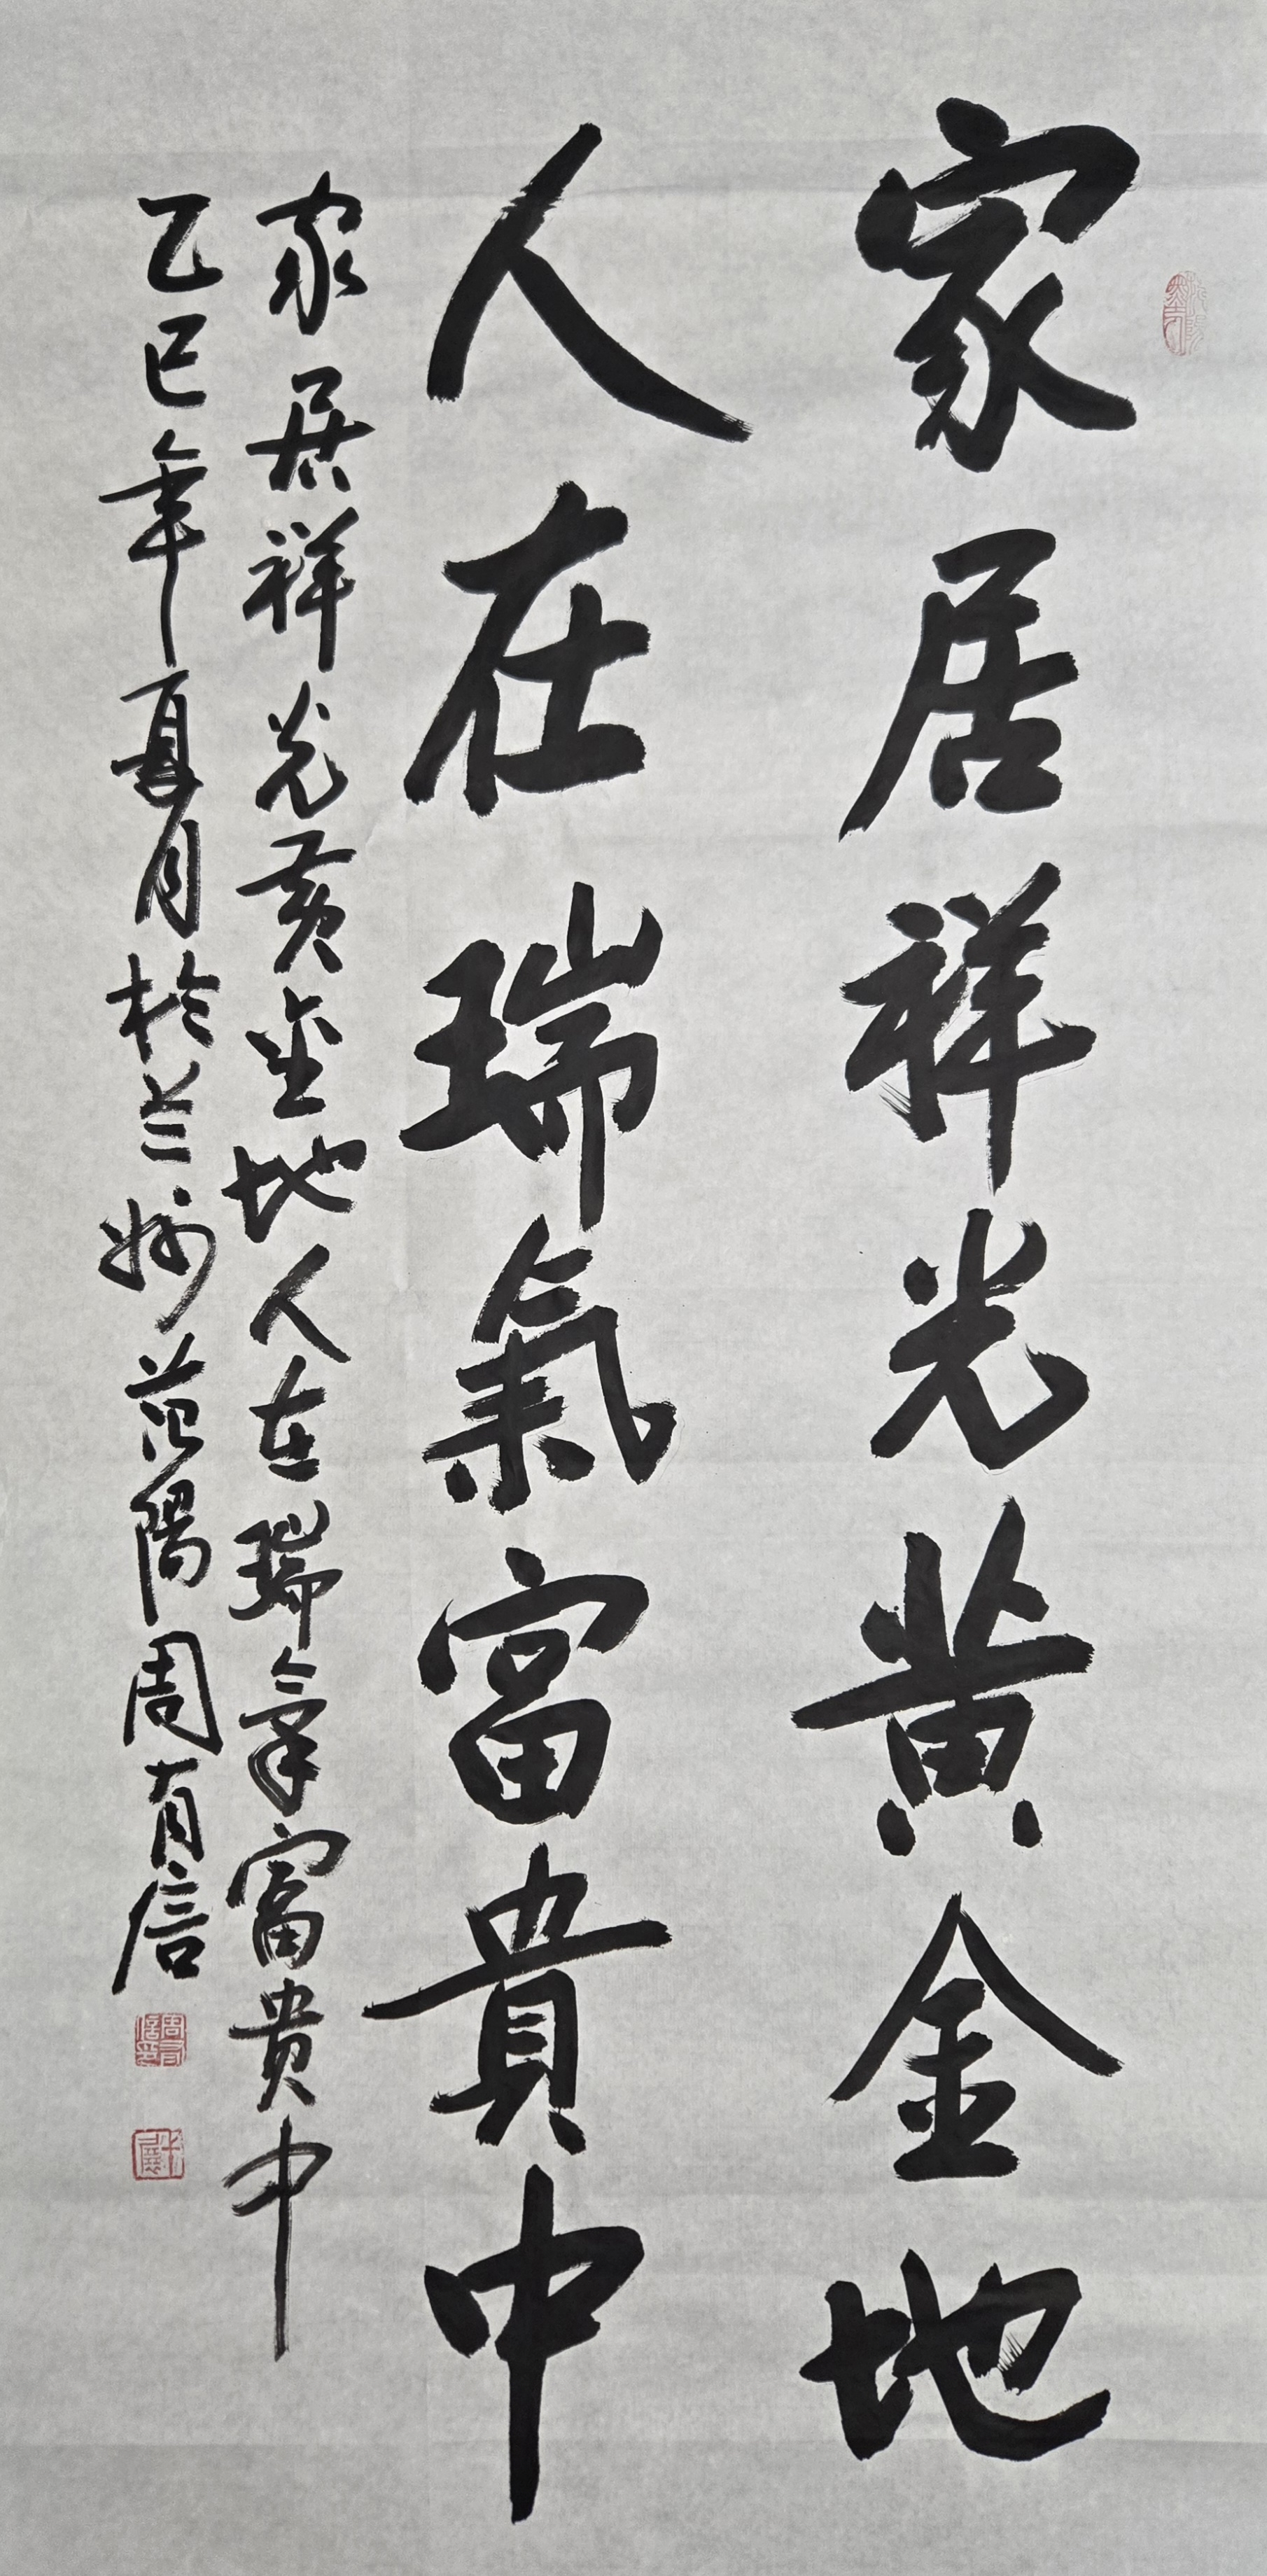 家居祥光黄金地
人在瑞氣富貴中
家居祥光黄金地人在瑞氣富貴中
乙巳年夏月於兰州范陽周有信